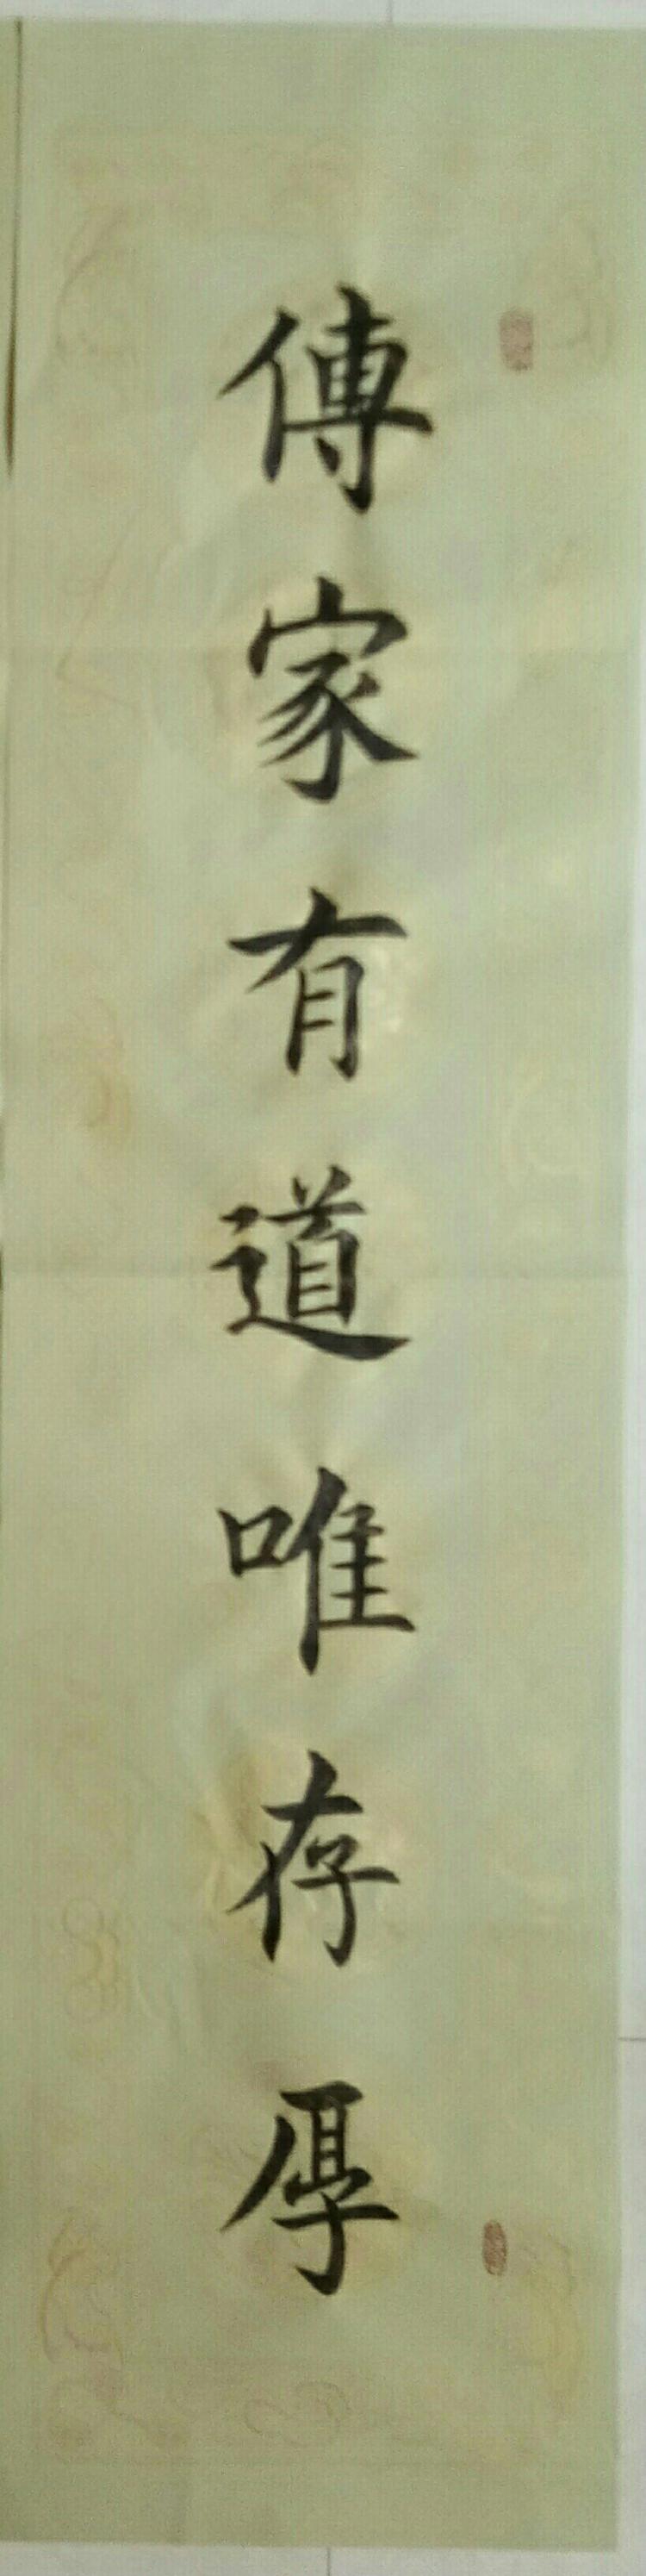 傳家有道唯存厚